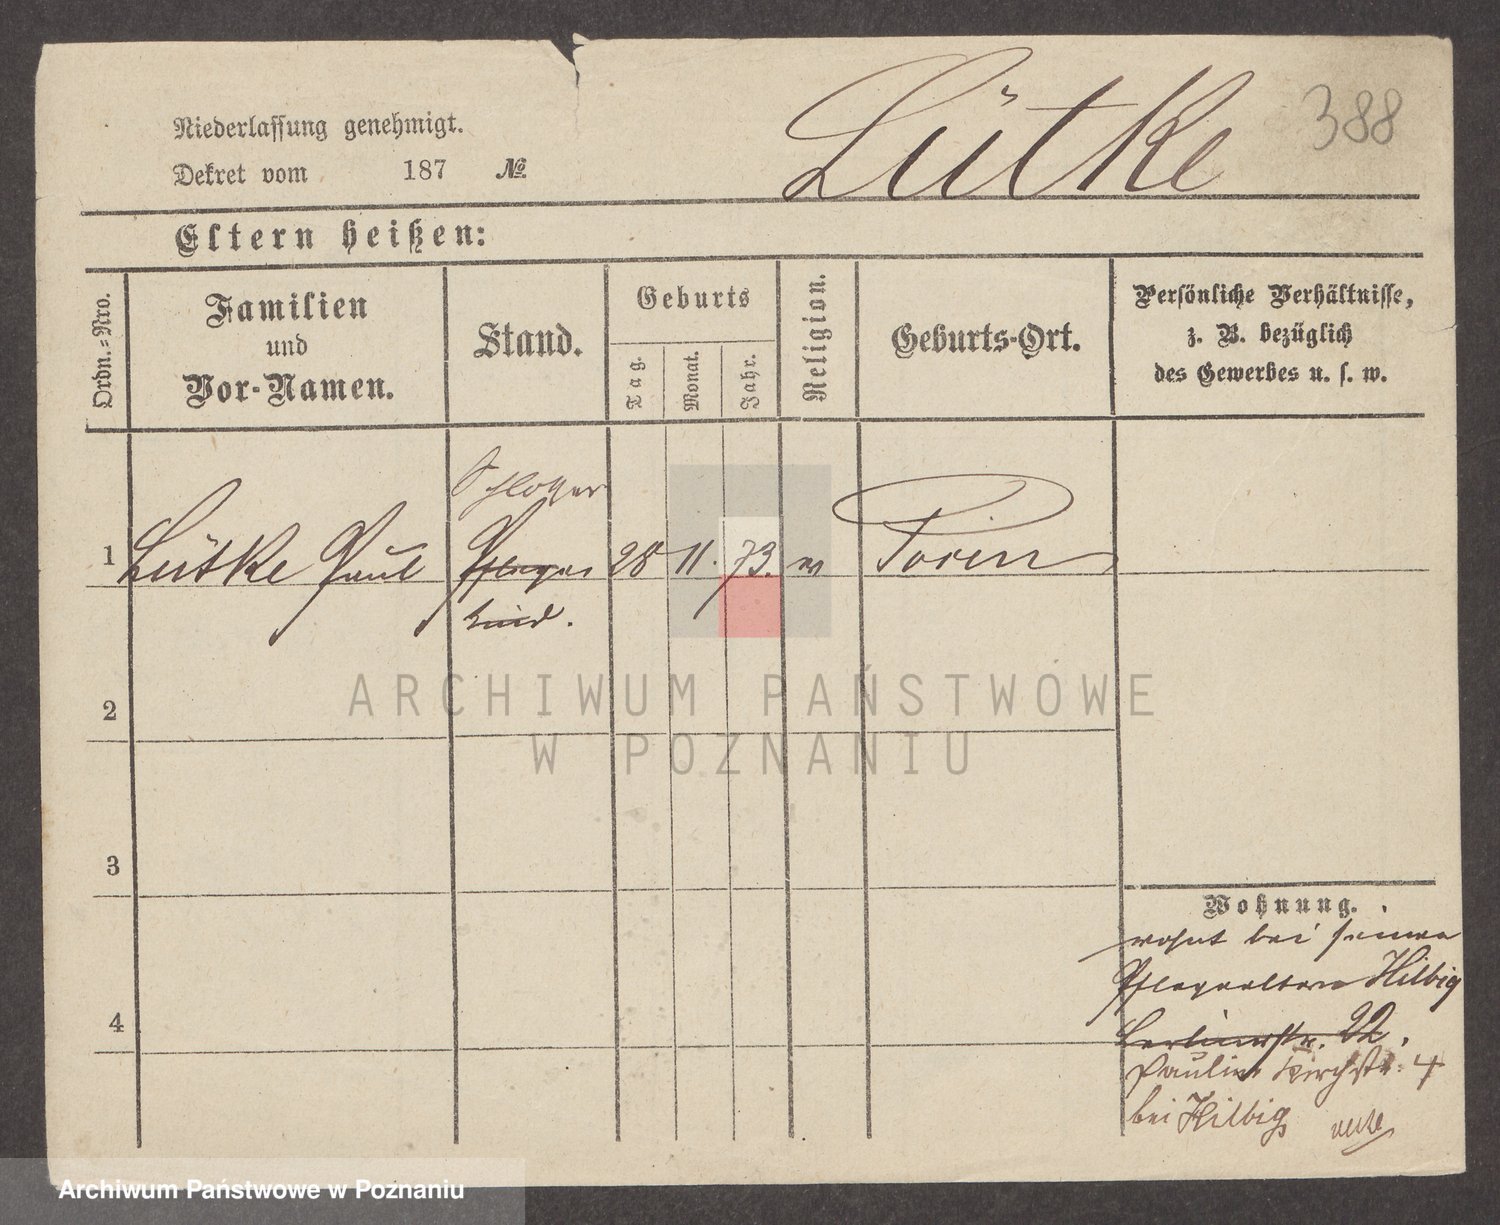 Lütke 388
Niederlassung genehmigt.
Dekret vom 187 №
Eltern heißen:
Ordn.=Nro.
Familien
und
Vor-Namen.
Stand.
Geburts
Tag.
Monat.
Jahr.
Religion.
Geburts-Ort.
Persönliche Verhältnisse,
z. B. bezüglich
des Gewerbes u. s. w.
Schlosser
1 Lütke Paul Pflege 28 11. 73.
kind.
2
3
4
Wohnung.
wohnt bei seinen
Pflegeeltern Hilbig
Berlinerstr. 22.
Paulin Kirchstr. 4
bei Hilbig
ARCHIWUM PAŃSTWOWE
W POZNANIU
Archiwum Państwowe w Poznaniu